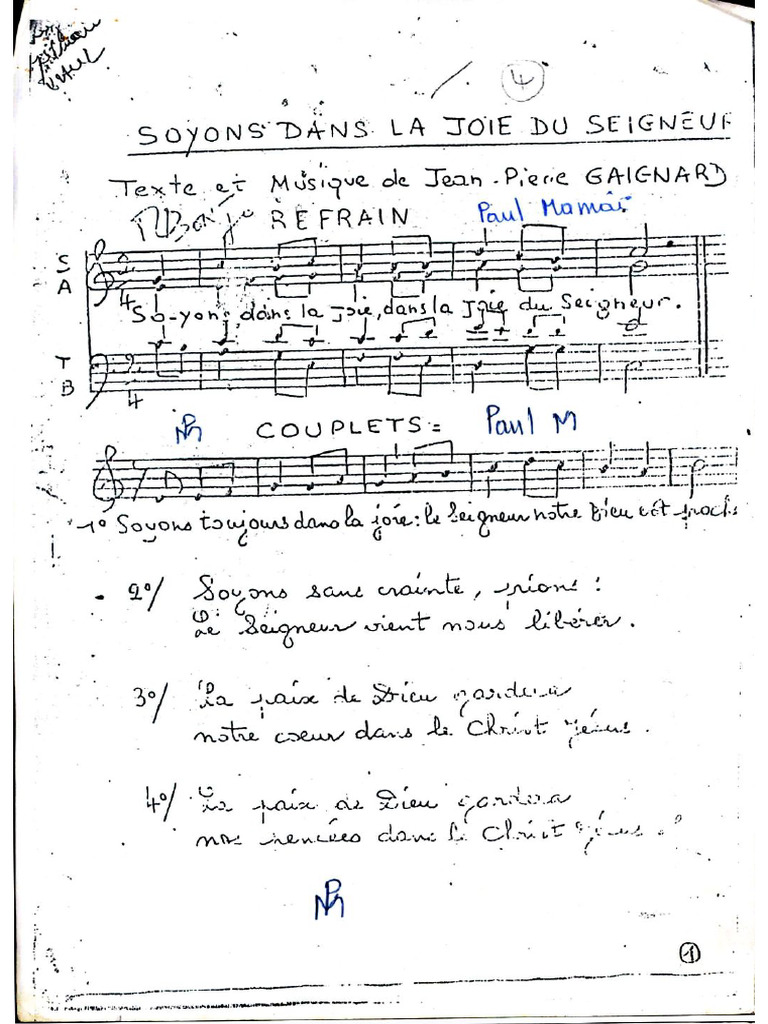 4
SOYONS DANS LA JOIE DU SEIGNEUR
Texte et Musique de Jean-Pierre GAIGNARD
REFRAIN
Paul Mamai
S
A
4
So-yons dans la joie, dans la joie du Seigneur.
T
B
4
COUPLETS =
Paul M
1º Soyons toujours dans la joie : le Seigneur notre Dieu est proch
2º/ Soyons sans crainte, prions :
Le Seigneur vient nous libérer.
3º/ La paix de Dieu gardera
notre coeur dans le Christ Jésus.
4º/ La paix de Dieu gardera
nos pensées dans le Christ Jésus.
1